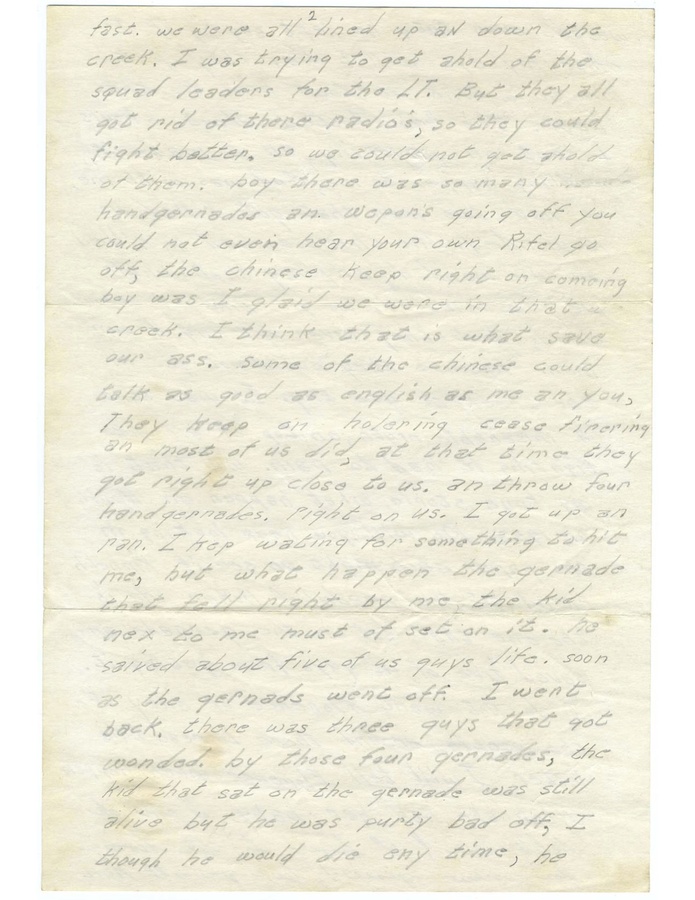 2
fast. we were all lined up an down the
creek. I was trying to get ahold of the
squad leaders for the LT. But they all
got rid of there radio's, so they could
fight better. so we could not get ahold
of them. boy there was so many
handgernades an. wepon's going off you
could not even hear your own Rifel go
off, the chinese keep right on comeing
boy was I glaid we were in that
creek. I think that is what save
our ass. some of the chinese could
talk as good as english as me an you,
They keep on holering cease firering
an most of us did, at that time they
got right up close to us. an throw four
handgernades. right on us. I got up an
ran. I kep wating for something to hit
me, but what happen the gernade
that fell right by me, the kid
nex to me must of set on it. he
saived about five of us guys life. soon
as the gernads went off. I went
back. there was three guys that got
wonded. by those four gernades, the
kid that sat on the gernade was still
alive but he was purty bad off, I
though he would die eny time, he